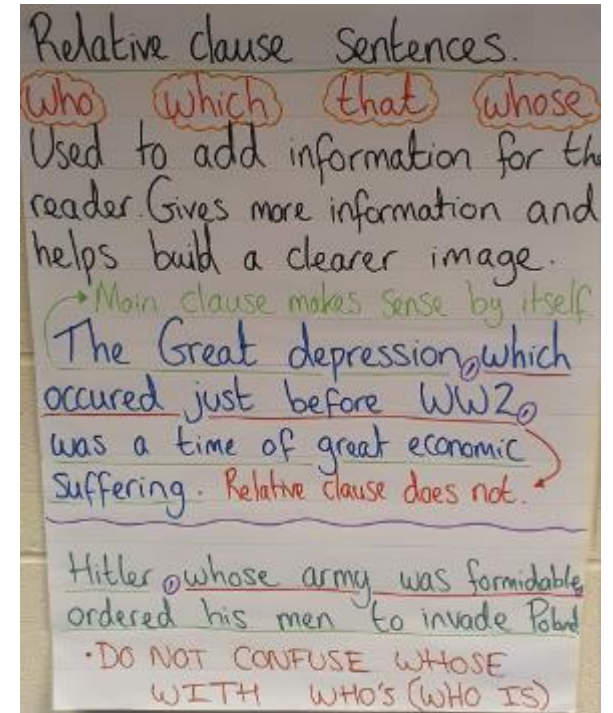 Relative clause sentences.
who which that whose
Used to add information for the
reader. Gives more information and
helps build a clearer image.
Main clause makes sense by itself
The Great depression, which
occured just before WW2,
was a time of great economic
suffering. Relative clause does not.
Hitler, whose army was formidable,
ordered his men to invade Poland
• DO NOT CONFUSE WHOSE
WITH WHO'S (WHO IS)